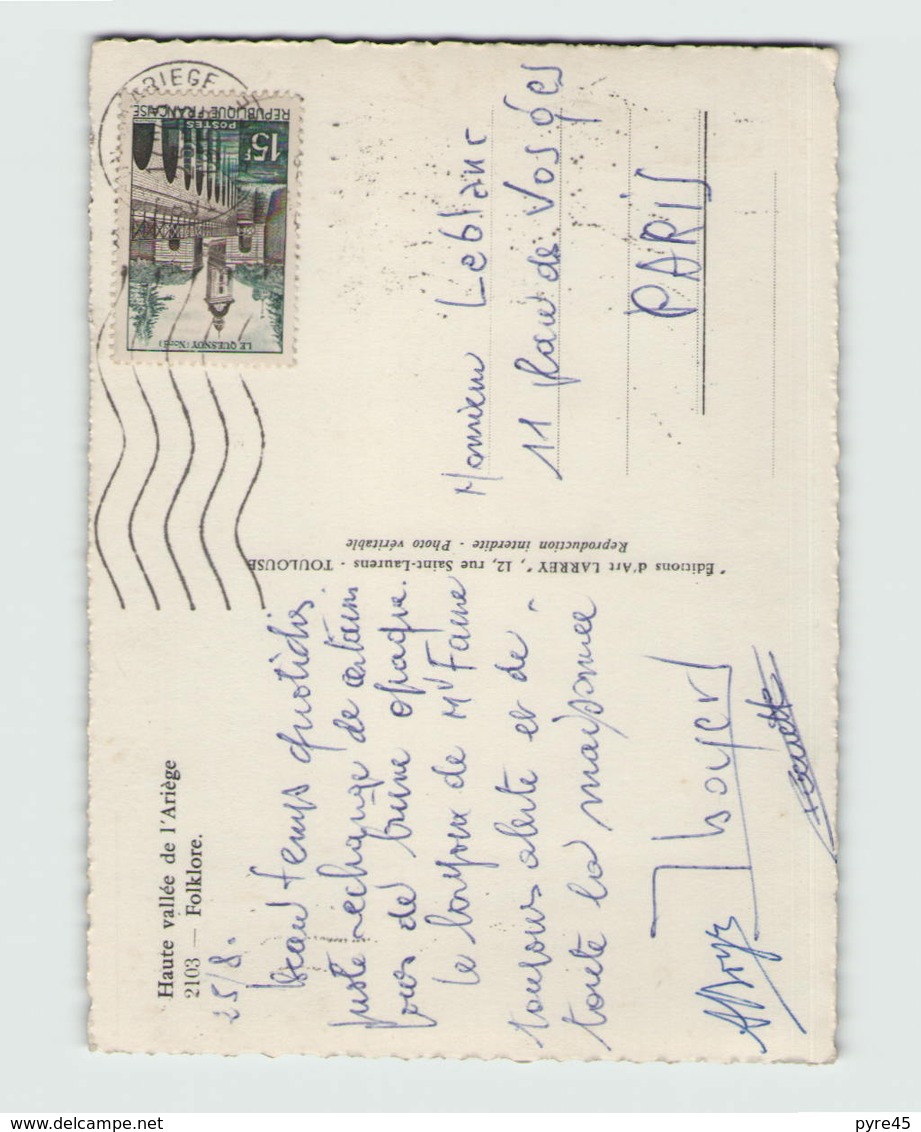 Haute vallée de l'Ariège
2103 — Folklore.
25/8.
beau temps quotidien.
juste échange de certains
jours de brume opaque.
Le bonjour de Mr Faure
toujours alerte et de
toute la maisonnée
Thoyers
"Éditions d'Art LARREY", 12, rue Saint-Laurens - TOULOUSE
Reproduction interdite - Photo véritable
ARIEGE
REPUBLIQUE FRANÇAISE
POSTES
15F
LE QUESNOY (Nord)
Monsieur Leblanc
11 place de Vosges
PARIS
pyre45